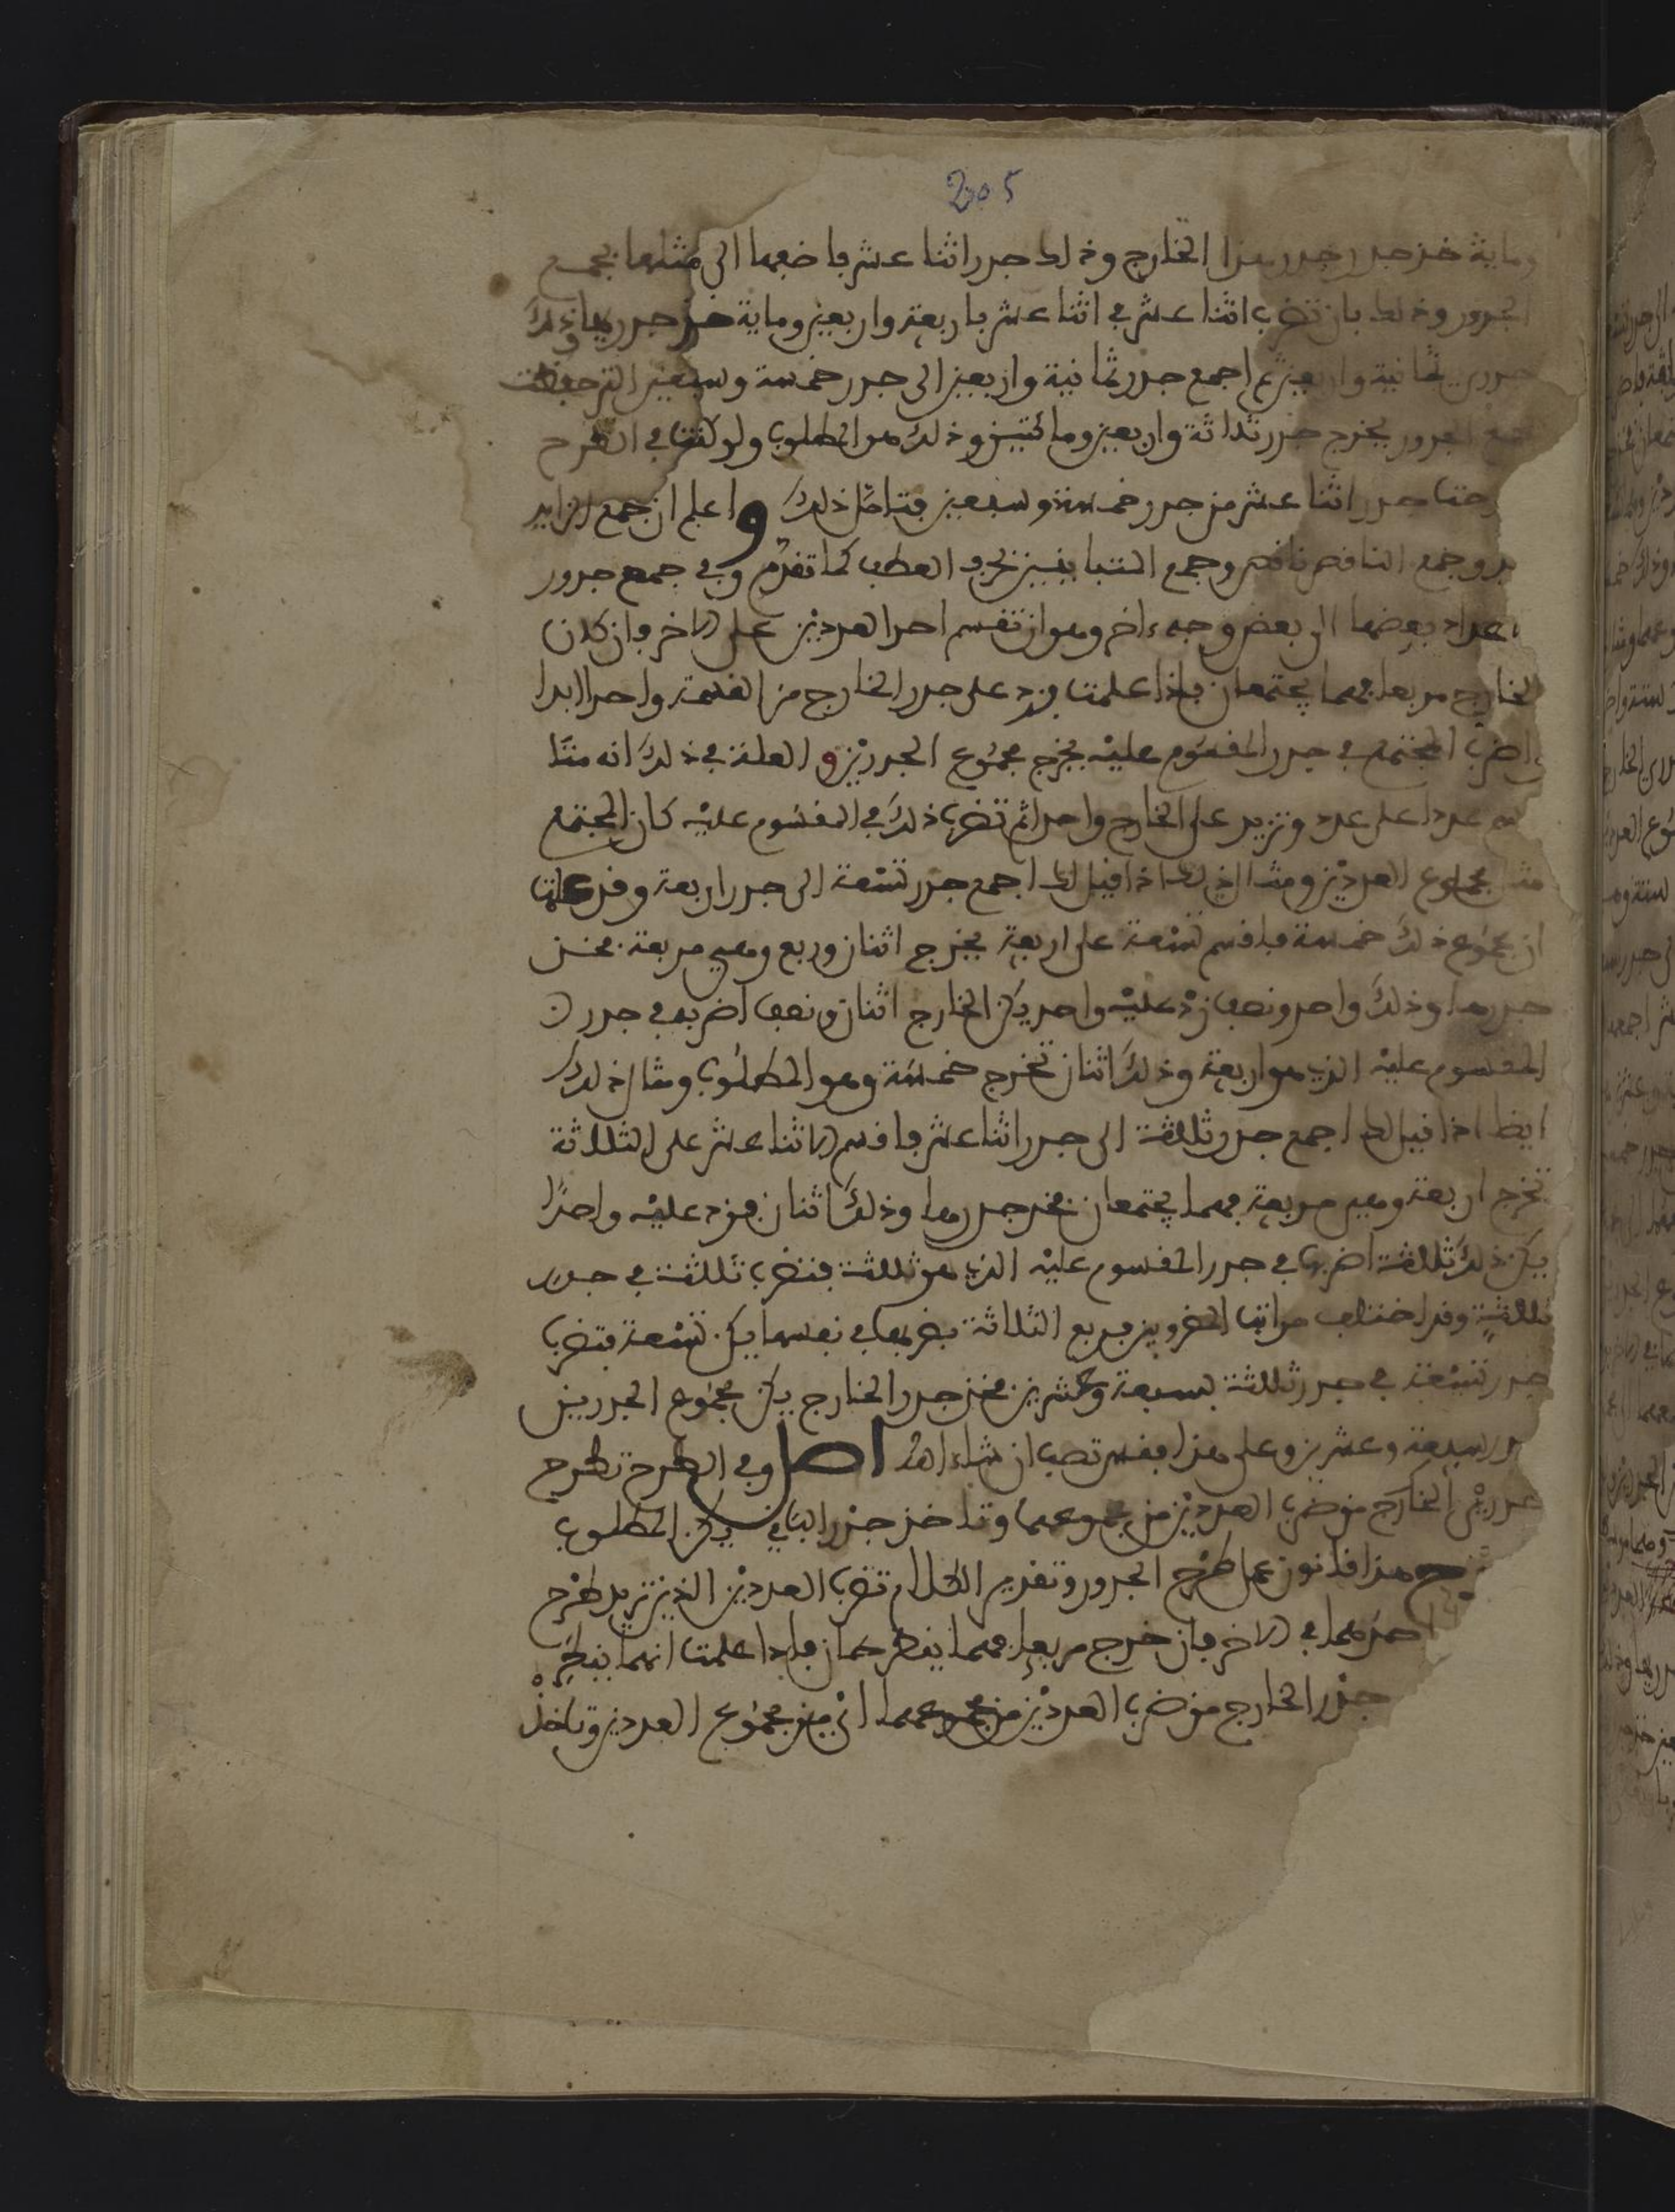 205
وماية خذ جذر جذر هذا الخارج وذلك جذر اثنا عشر فاضعها الى مثلها بجمع
الجذور وذلك بان تضرب اثنا عشر في اثنا عشر باربعة واربعين وماية خذ جذريها وذلك
جذري ثمانية واربعين ثم اجمع جذر ثمانية واربعين الى جذر خمسة وسبعين التي حفظت
الجذور يخرج جذر ثلاثة واربعين ومائتين وذلك هو المطلوب ولو كنت في الطرح
جذر اثنا عشر من جذر خمسة وسبعين فتامل ذلك واعلم ان جمع الزايد
وجمع الناقص ناقص وجمع المتباينين بحرف العطف كما تقدم وفي جمع جذور
اعداد بعضها الى بعض وجه ءاخر وهو ان تقسم احد العددين على الاخر فان كان
الخارج مربعا فهما يجتمعان فاذا علمت فزد على جذر الخارج من القسمة واحدا ابدا
اضرب المجتمع في جذر المقسوم عليه يخرج مجموع الجذرين والعلة في ذلك انه متا
عددا على عدد وتزيد على الخارج واحدا ثم تضرب ذلك في المقسوم عليه كان المجتمع
مثل مجموع العددين ومثال ذلك اذا قيل لك اجمع جذر تسعة الى جذر اربعة وقد علمت
ان مجموع ذلك خمسة فاقسم تسعة على اربعة يخرج اثنان وربع وهي مربعة فخذ
جذرها وذلك واحد ونصف زد عليه واحد يكن الخارج اثنان ونصف اضربه في جذر
المقسوم عليه الذي هو اربعة وذلك اثنان تخرج خمسة وهو المطلوب ومثال ذلك
ايضا اذا قيل لك اجمع جذر ثلثة الى جذر اثنا عشر فاقسم الاثنا عشر على الثلاثة
تخرج اربعة وهي مربعة فهما يجتمعان فخذ جذرها وذلك اثنان فزد عليه واحدا
يكن ذلك ثلثة اضربها في جذر المقسوم عليه الذي هو ثلثة فتضرب ثلثة في جذر
ثلثة وقد اختلف مراتب المضروبين فربع الثلاثة بضربها في نفسها يكن تسعة فتضرب
جذر تسعة في جذر ثلثة بسبعة وعشرين فخذ جذر الخارج يكن مجموع الجذرين
جذر سبعة وعشرين وعلى هذا فقس تصب ان شاء الله اصل وفي الطرح تطرح
جذري الخارج من ضرب العددين من مجموعهما وتاخذ جذر الباقي يكن المطلوب
هذا قانون عمل طرح الجذور وتقديم الكلام تضرب العددين الذين تريد طرح
احدهما في الاخر فان خرج مربعا فهما ينطرحان فاذا علمت انهما
جذر الخارج من ضرب العددين من مجموعهما اي من مجموع العددين وتاخذ